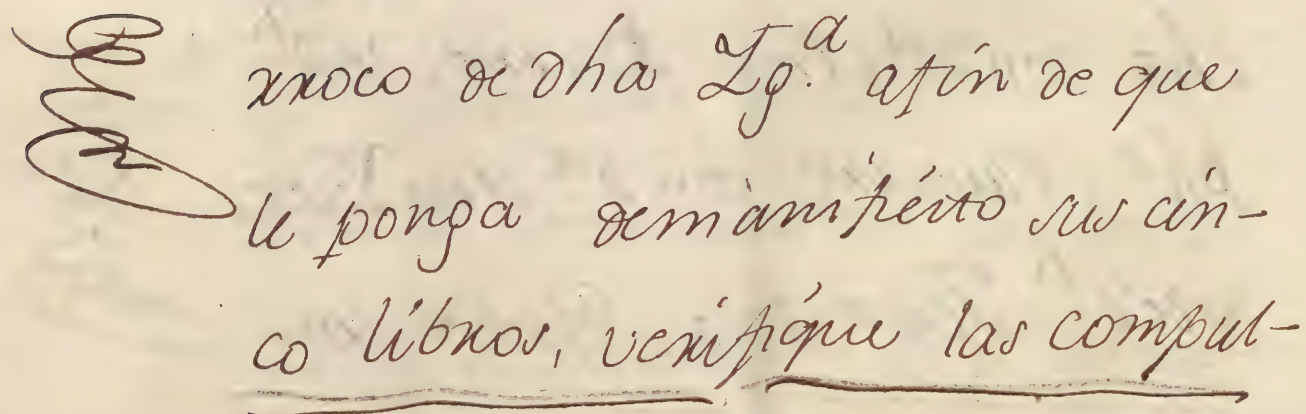 rroco de dha Igª. afin de que
le ponga demanifiesto sus cin-
co libros, verifique las compul-